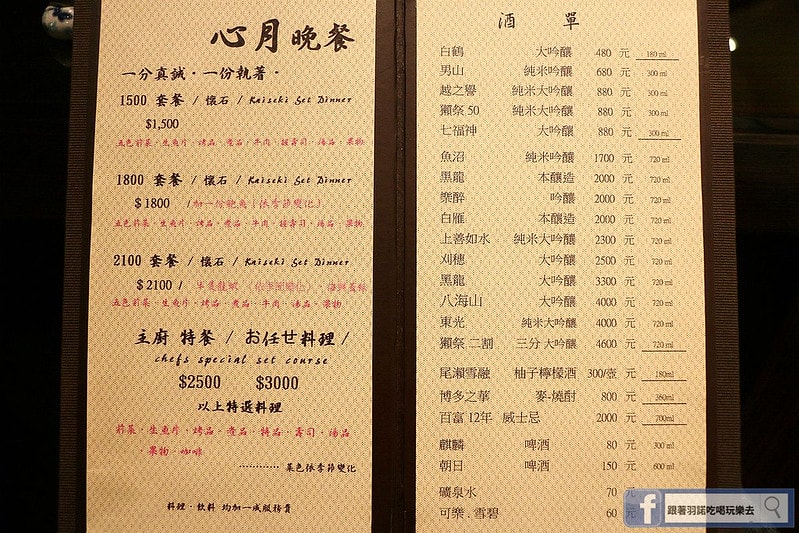 心月晚餐
一分真誠・一份執著・
1500 套餐 / 懷石 / Kaiseki Set Dinner
$1,500
五色前菜・生魚片・烤品・煮品・牛肉・握壽司・湯品・果物
1800 套餐 / 懷石 / Kaiseki Set Dinner
$ 1800 / 加一份鮑魚(依季節變化)
五色前菜・生魚片・烤品・煮品・牛肉・握壽司・湯品・果物
2100 套餐 / 懷石 / Kaiseki Set Dinner
$ 2100 / 半隻龍蝦 (依季節變化)
五色前菜・生魚片・烤品・煮品・牛肉・湯品・果物
主廚 特餐 / お任せ料理 /
chefs special set course
$2500 $3000
以上特選料理
前菜・生魚片・烤品・煮品・特品・壽司・湯品
・果物・咖啡
………… 菜色依季節變化
料理・飲料 均加一成服務費
酒 單
白鶴 大吟釀 480 元 180 ml
男山 純米吟釀 680 元 300 ml
越之譽 純米大吟釀 880 元 300 ml
獺祭 50 純米大吟釀 880 元 300 ml
七福神 大吟釀 880 元 300 ml
魚沼 純米吟釀 1700 元 720 ml
黑龍 本釀造 2000 元 720 ml
樂醉 吟釀 2000 元 720 ml
白雁 本釀造 2000 元 720 ml
上善如水 純米大吟釀 2300 元 720 ml
刈穗 大吟釀 2500 元 720 ml
黑龍 大吟釀 3300 元 720 ml
八海山 大吟釀 4000 元 720 ml
東光 純米大吟釀 4000 元 720 ml
獺祭 二割 三分 大吟釀 4600 元 720 ml
尾瀨雪融 柚子檸檬酒 300/壺 元 180ml
博多之華 麥-燒酎 800 元 360ml
百富 12年 威士忌 2000 元 700ml
麒麟 啤酒 80 元 300 ml
朝日 啤酒 150 元 600 ml
礦泉水 70 元
可樂 . 雪碧 60 元
f 跟著羽諾吃喝玩樂去